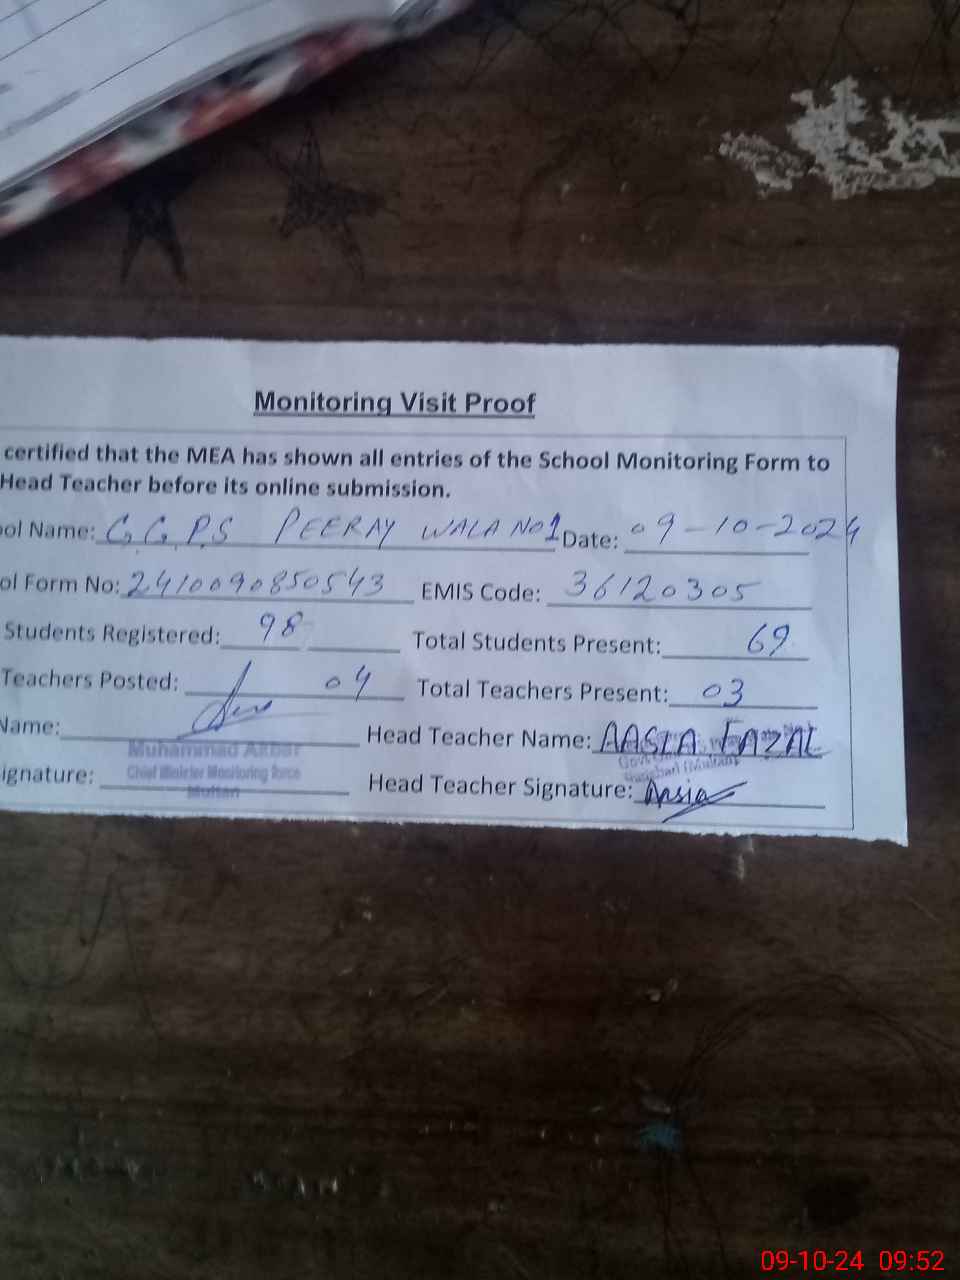 Monitoring Visit Proof
certified that the MEA has shown all entries of the School Monitoring Form to
Head Teacher before its online submission.
ool Name: G.G.P.S PEERAY WALA NO1 Date: 09-10-2024
ol Form No: 2410090850543 EMIS Code: 36120305
Students Registered: 98 Total Students Present: 69
Teachers Posted: 04 Total Teachers Present: 03
Name: Head Teacher Name: AASIA FAZAL
Muhammad Akbar
Chief Minister Monitoring force
Multan
ignature: Head Teacher Signature: Aasia
09-10-24 09:52